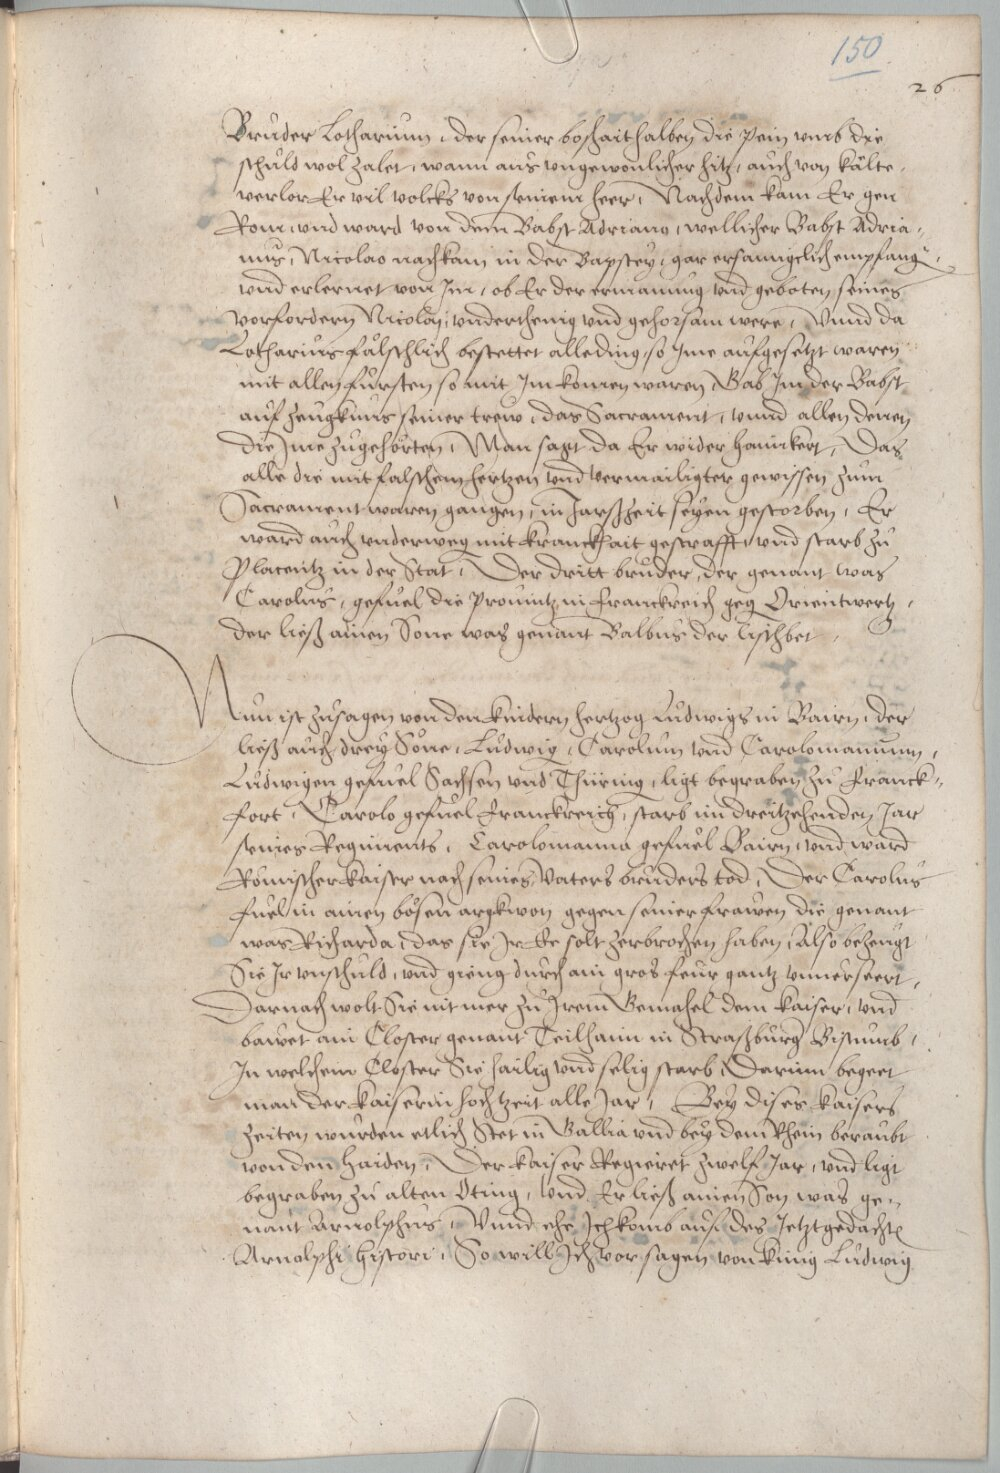 150
26
Bruder Lotharium, der seiner boßhait halben die pein umb die
schuld wol zalet, wann aus ungewonlicher hitz, auch von kälte,
verlor Er vil volcks von seinem heer, Nachdem kam Er gen
Rom, und ward von dem Babst Adriano, wellicher Babst Adria-
nus, Nicolao nachkam in der Bapstey, gar ersamigclich empfang,
und erlernet von Im, ob Er der ermanung und geboten seines
vorfordern Nicolaj, underthenig und gehorsam were, Unnd da
Lotharius fälschlich bestettet alle ding, so Ime aufgesetzt waren
mit allen fürsten so mit Im komen waren, Gab Im der Babst
auf zeugknus seiner trew, das Sacrament, unnd allen denen
die Ime zugehörten, Man sagt da Er wider haimkert, Das
alle die mit falschem hertzen und vermailigter gewissen zum
Sacrament waren gangen, in Jarßzeit seyen gestorben, Er
ward auch underweg mit kranckhait gestrafft, und starb zu
Placentz in der Stat, Der dritt bruder, der genant was
Carolus, gefuel die Provintz in Franckreich geg Orientwertz,
der ließ ainen Sone was genant Balbus der lischbet,
Nun ist zusagen von den kindern hertzog Ludwigs in Bairn, der
ließ auch drey Söne, Ludwig, Carolum und Carolomannum,
Ludwigen gefuel Sachsen und Thüring, ligt begraben zu Franck-
fort, Carolo gefuel Franckreich, starb im dreitzehenden Jar
seines Regiments, Carolomanno gefuel Bairn, und ward
Römischer kaiser nach seines Vaters bruders tod, Der Carolus
fuel in ainen bösen argkwon gegen seiner frawen die genant
was Richarda, das sie Ir Ee solt zerbrochen haben, Also bezeugt
Sie Ir unschuld, und gieng durch ain gros feur gantz unverseert,
Darnach wolt Sie nit mer zu Irem Gemahel dem kaiser, und
bawet ain Closter genant Teilhaim in Straßburg Bistumb,
In welchem Closter Sie hailig und selig starb, Darumb begeet
man der kaiserin hochtzeit alle Jar, Bey dises kaisers
zeiten wurden etlich Stet in Gallia und bey dem Rhein beraubt
von den haiden, Der kaiser Regieret zwelf Jar, und ligt
begraben zu alten Oting, Und Er ließ ainen Son was ge-
nant Arnolphus, Unnd ehe Ich komb auf des Jetztgedacht
Arnolphi histori, So will Ich vor sagen von künig Ludwig